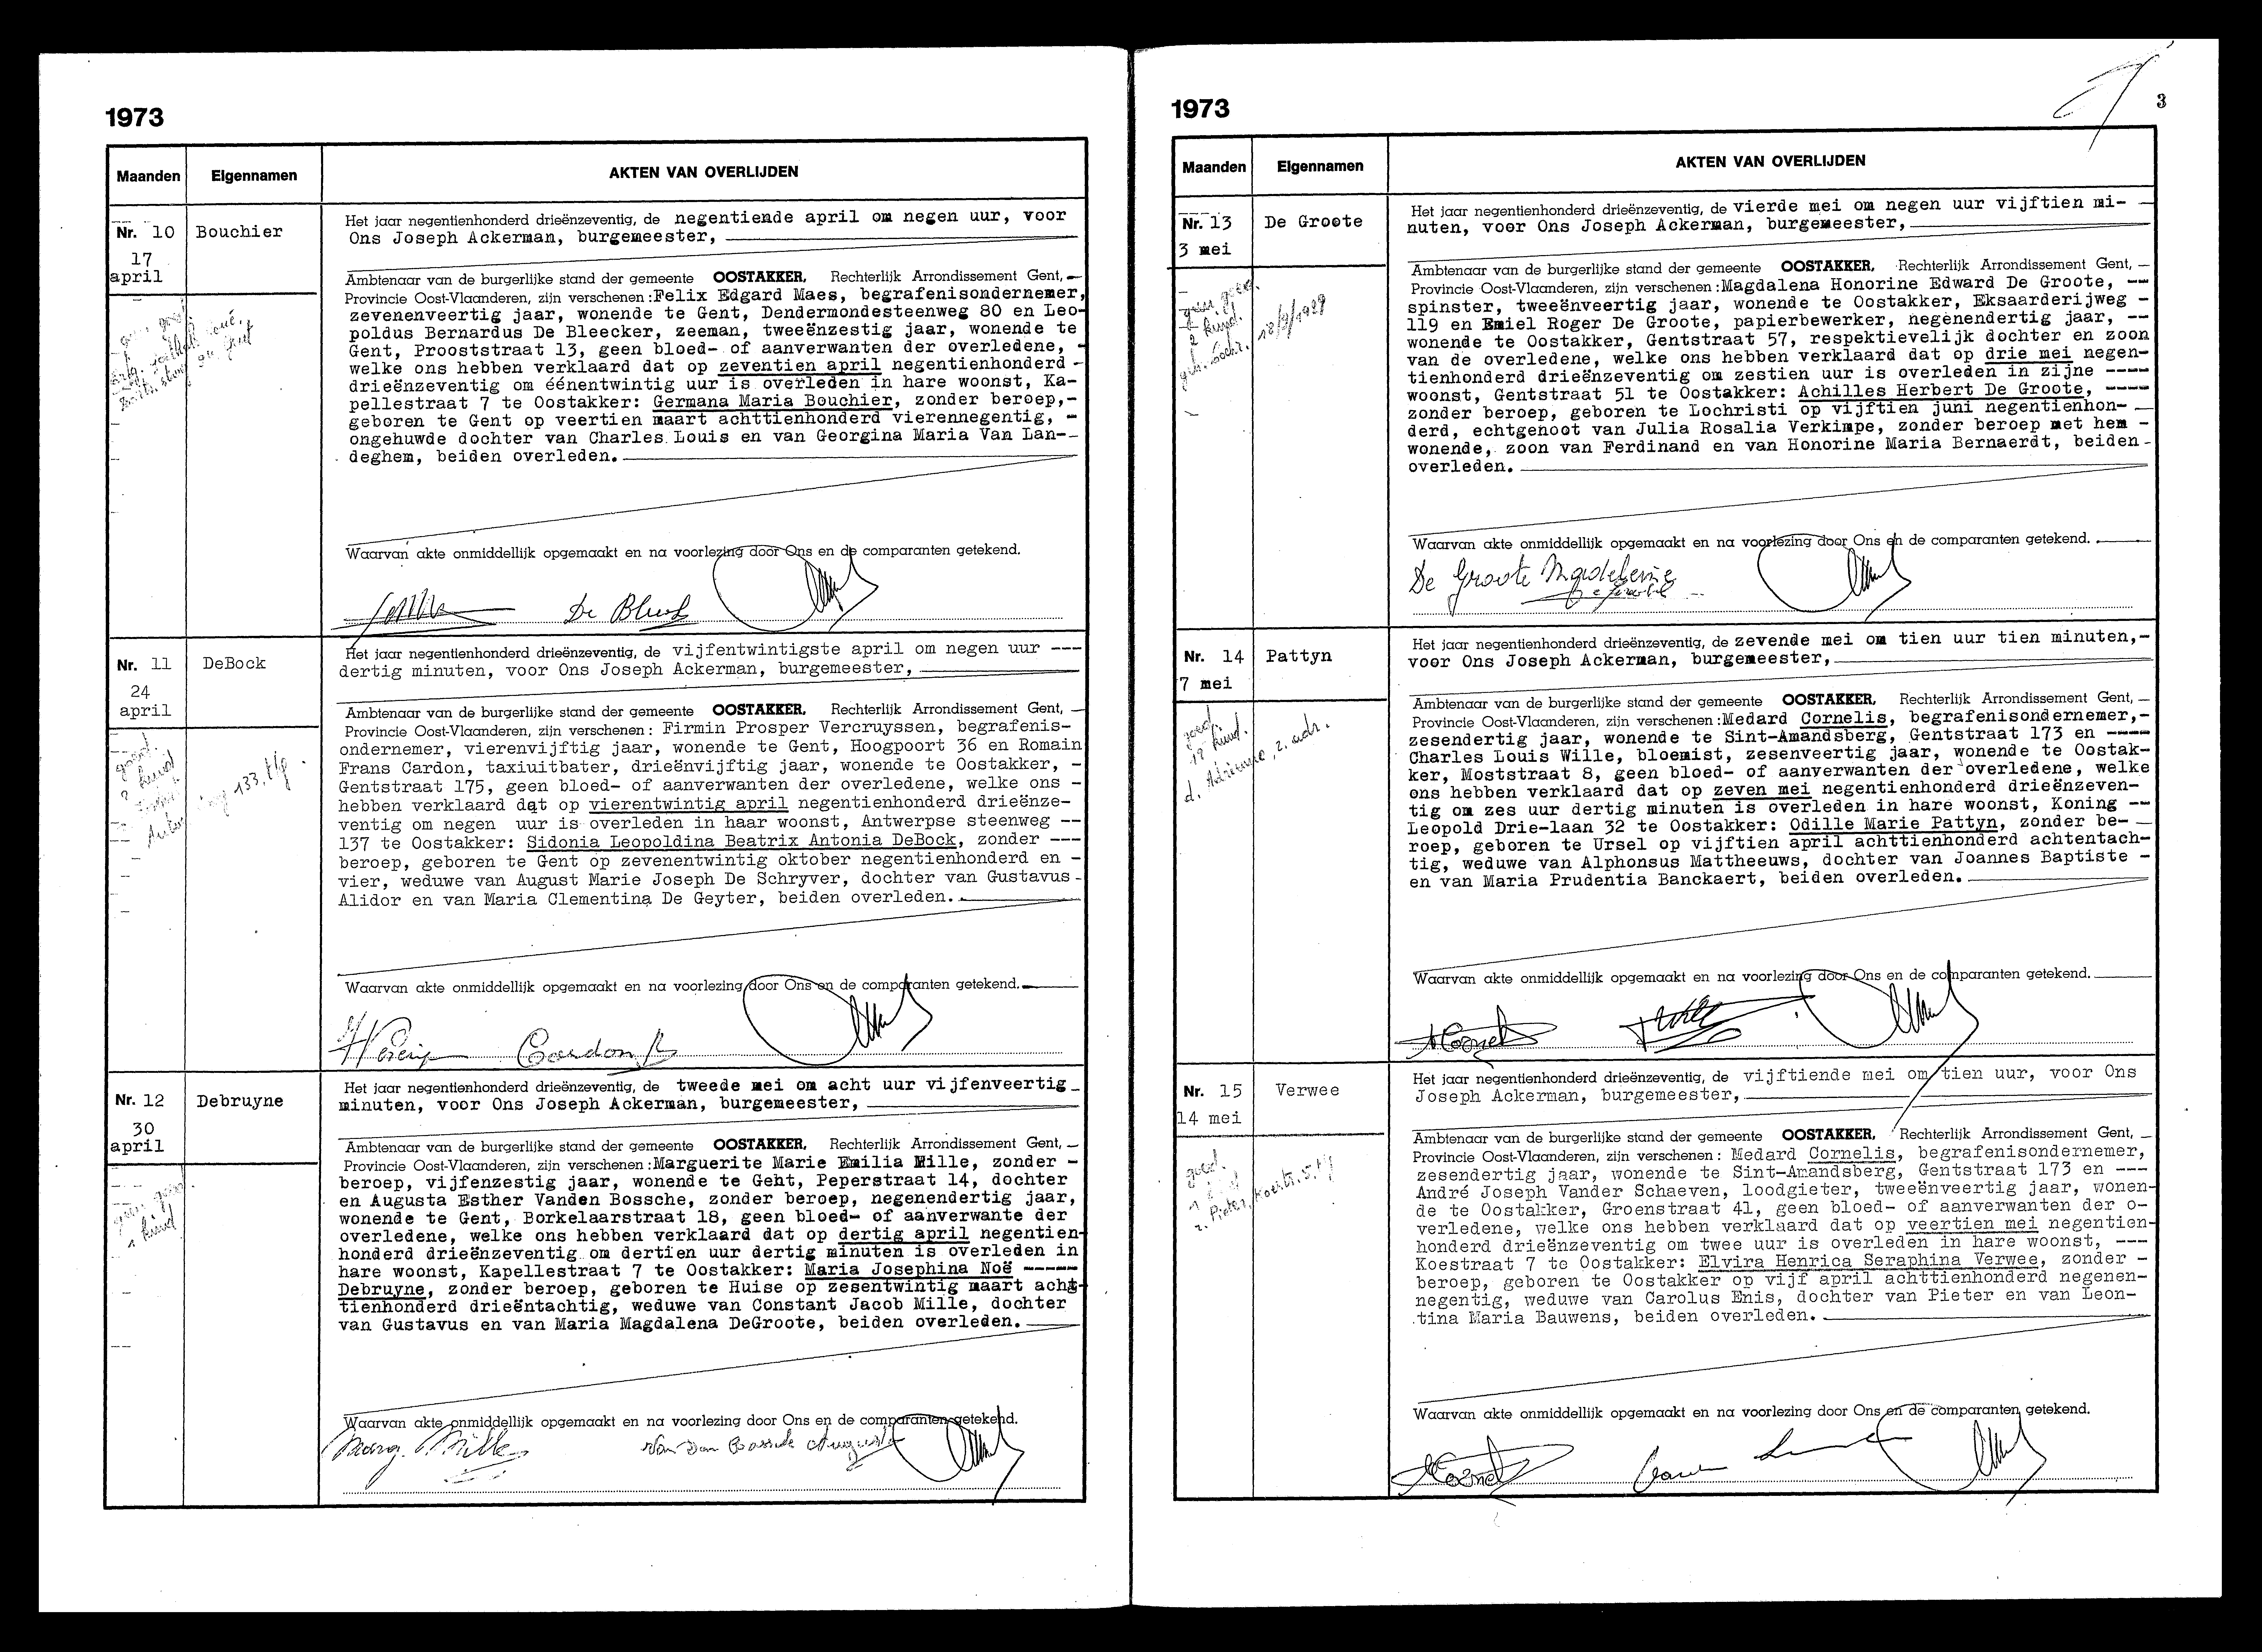 1973
Maanden
Eigennamen
AKTEN VAN OVERLIJDEN
Nr. 10
17
april
Bouchier
Het jaar negentienhonderd drieënzeventig, de negentiende april om negen uur, voor
Ons Joseph Ackerman, burgemeester,
Ambtenaar van de burgerlijke stand der gemeente OOSTAKKER, Rechterlijk Arrondissement Gent,
Provincie Oost-Vlaanderen, zijn verschenen: Felix Edgard Maes, begrafenisondernemer,
zevenenveertig jaar, wonende te Gent, Dendermondesteenweg 80 en Leo-
poldus Bernardus De Bleecker, zeeman, tweeënzestig jaar, wonende te
Gent, Prooststraat 13, geen bloed- of aanverwanten der overledene, -
welke ons hebben verklaard dat op zeventien april negentienhonderd -
drieënzeventig om éénentwintig uur is overleden in hare woonst, Ka-
pellestraat 7 te Oostakker: Germana Maria Bouchier, zonder beroep,-
geboren te Gent op veertien maart achttienhonderd vierennegentig, -
ongehuwde dochter van Charles Louis en van Georgina Maria Van Lan--
deghem, beiden overleden.
Waarvan akte onmiddellijk opgemaakt en na voorlezing door Ons en de comparanten getekend.
Nr. 11
24
april
DeBock
Het jaar negentienhonderd drieënzeventig, de vijfentwintigste april om negen uur ---
dertig minuten, voor Ons Joseph Ackerman, burgemeester,
Ambtenaar van de burgerlijke stand der gemeente OOSTAKKER, Rechterlijk Arrondissement Gent,
Provincie Oost-Vlaanderen, zijn verschenen: Firmin Prosper Vercruyssen, begrafenis-
ondernemer, vierenvijftig jaar, wonende te Gent, Hoogpoort 36 en Romain
Frans Cardon, taxiuitbater, drieënvijftig jaar, wonende te Oostakker, -
Gentstraat 175, geen bloed- of aanverwanten der overledene, welke ons -
hebben verklaard dat op vierentwintig april negentienhonderd drieënze-
ventig om negen uur is overleden in haar woonst, Antwerpse steenweg --
137 te Oostakker: Sidonia Leopoldina Beatrix Antonia DeBock, zonder ---
beroep, geboren te Gent op zevenentwintig oktober negentienhonderd en -
vier, weduwe van August Marie Joseph De Schryver, dochter van Gustavus -
Alidor en van Maria Clementina De Geyter, beiden overleden.
Waarvan akte onmiddellijk opgemaakt en na voorlezing door Ons en de comparanten getekend.
Cardon R
Nr. 12
30
april
Debruyne
Het jaar negentienhonderd drieënzeventig, de tweede mei om acht uur vijfenveertig
minuten, voor Ons Joseph Ackerman, burgemeester,
Ambtenaar van de burgerlijke stand der gemeente OOSTAKKER, Rechterlijk Arrondissement Gent,
Provincie Oost-Vlaanderen, zijn verschenen: Marguerite Marie Emilia Mille, zonder -
beroep, vijfenzestig jaar, wonende te Gent, Peperstraat 14, dochter
en Augusta Esther Vanden Bossche, zonder beroep, negenendertig jaar,
wonende te Gent, Borkelaarstraat 18, geen bloed- of aanverwante der
overledene, welke ons hebben verklaard dat op dertig april negentien-
honderd drieënzeventig om dertien uur dertig minuten is overleden in
hare woonst, Kapellestraat 7 te Oostakker: Maria Josephina Noë -----
Debruyne, zonder beroep, geboren te Huise op zesentwintig maart acht-
tienhonderd drieëntachtig, weduwe van Constant Jacob Mille, dochter
van Gustavus en van Maria Magdalena DeGroote, beiden overleden.
Waarvan akte onmiddellijk opgemaakt en na voorlezing door Ons en de comparanten getekend.
Marg. Mille
Van Den Bossche Augusta
1973
3
Maanden
Eigennamen
AKTEN VAN OVERLIJDEN
Nr. 13
3 mei
De Groote
18/9/1929
Het jaar negentienhonderd drieënzeventig, de vierde mei om negen uur vijftien mi-
nuten, voor Ons Joseph Ackerman, burgemeester,
Ambtenaar van de burgerlijke stand der gemeente OOSTAKKER, Rechterlijk Arrondissement Gent,
Provincie Oost-Vlaanderen, zijn verschenen: Magdalena Honorine Edward De Groote, --
spinster, tweeënveertig jaar, wonende te Oostakker, Eksaarderijweg -
119 en Emiel Roger De Groote, papierbewerker, negenendertig jaar, --
wonende te Oostakker, Gentstraat 57, respektievelijk dochter en zoon
van de overledene, welke ons hebben verklaard dat op drie mei negen-
tienhonderd drieënzeventig om zestien uur is overleden in zijne ----
woonst, Gentstraat 51 te Oostakker: Achilles Herbert De Groote, ----
zonder beroep, geboren te Lochristi op vijftien juni negentienhon-
derd, echtgenoot van Julia Rosalia Verkimpe, zonder beroep met hem -
wonende, zoon van Ferdinand en van Honorine Maria Bernaerdt, beiden -
overleden.
Waarvan akte onmiddellijk opgemaakt en na voorlezing door Ons en de comparanten getekend.
De Groote Magdeleine
Nr. 14
7 mei
Pattyn
Het jaar negentienhonderd drieënzeventig, de zevende mei om tien uur tien minuten,-
voor Ons Joseph Ackerman, burgemeester,
Ambtenaar van de burgerlijke stand der gemeente OOSTAKKER, Rechterlijk Arrondissement Gent,
Provincie Oost-Vlaanderen, zijn verschenen: Medard Cornelis, begrafenisondernemer,-
zesendertig jaar, wonende te Sint-Amandsberg, Gentstraat 173 en ----
Charles Louis Wille, bloemist, zesenveertig jaar, wonende te Oostak-
ker, Moststraat 8, geen bloed- of aanverwanten der overledene, welke
ons hebben verklaard dat op zeven mei negentienhonderd drieënzeven-
tig om zes uur dertig minuten is overleden in hare woonst, Koning --
Leopold Drie-laan 32 te Oostakker: Odille Marie Pattyn, zonder be-
roep, geboren te Ursel op vijftien april achttienhonderd achtentach-
tig, weduwe van Alphonsus Mattheeuws, dochter van Joannes Baptiste -
en van Maria Prudentia Banckaert, beiden overleden.
Waarvan akte onmiddellijk opgemaakt en na voorlezing door Ons en de comparanten getekend.
Nr. 15
14 mei
Verwee
Het jaar negentienhonderd drieënzeventig, de vijftiende mei om tien uur, voor Ons
Joseph Ackerman, burgemeester,
Ambtenaar van de burgerlijke stand der gemeente OOSTAKKER, Rechterlijk Arrondissement Gent,
Provincie Oost-Vlaanderen, zijn verschenen: Medard Cornelis, begrafenisondernemer,
zesendertig jaar, wonende te Sint-Amandsberg, Gentstraat 173 en ---
André Joseph Vander Schaeven, loodgieter, tweeënveertig jaar, wonen-
de te Oostakker, Groenstraat 41, geen bloed- of aanverwanten der o-
verledene, welke ons hebben verklaard dat op veertien mei negentien-
honderd drieënzeventig om twee uur is overleden in hare woonst, ---
Koestraat 7 te Oostakker: Elvira Henrica Seraphina Verwee, zonder -
beroep, geboren te Oostakker op vijf april achttienhonderd negenen-
negentig, weduwe van Carolus Enis, dochter van Pieter en van Leon-
tina Maria Bauwens, beiden overleden.
Waarvan akte onmiddellijk opgemaakt en na voorlezing door Ons en de comparanten getekend.